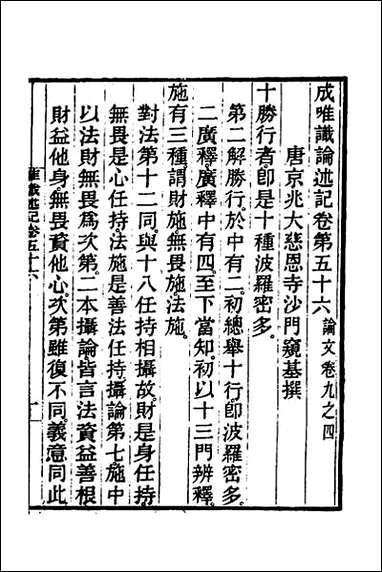 成唯識論述記卷第五十六 論文卷九之四
唐京兆大慈恩寺沙門窺基撰
十勝行者卽是十種波羅密多。
第二解勝行。於中有二。初總舉十行。卽波羅密多。
二廣釋。廣釋中有四。至下當知。初以十三門辨釋。
施有三種。謂財施無畏施法施。
對法第十二同。與十八任持相攝故。財是身任持。
無畏是心任持。法施是善法任持。攝論第七施中
以法財無畏爲次第。二本攝論。皆言法資益善根。
財益他身。無畏資他心。次第雖復不同。義意同此
唯識述記卷五十六